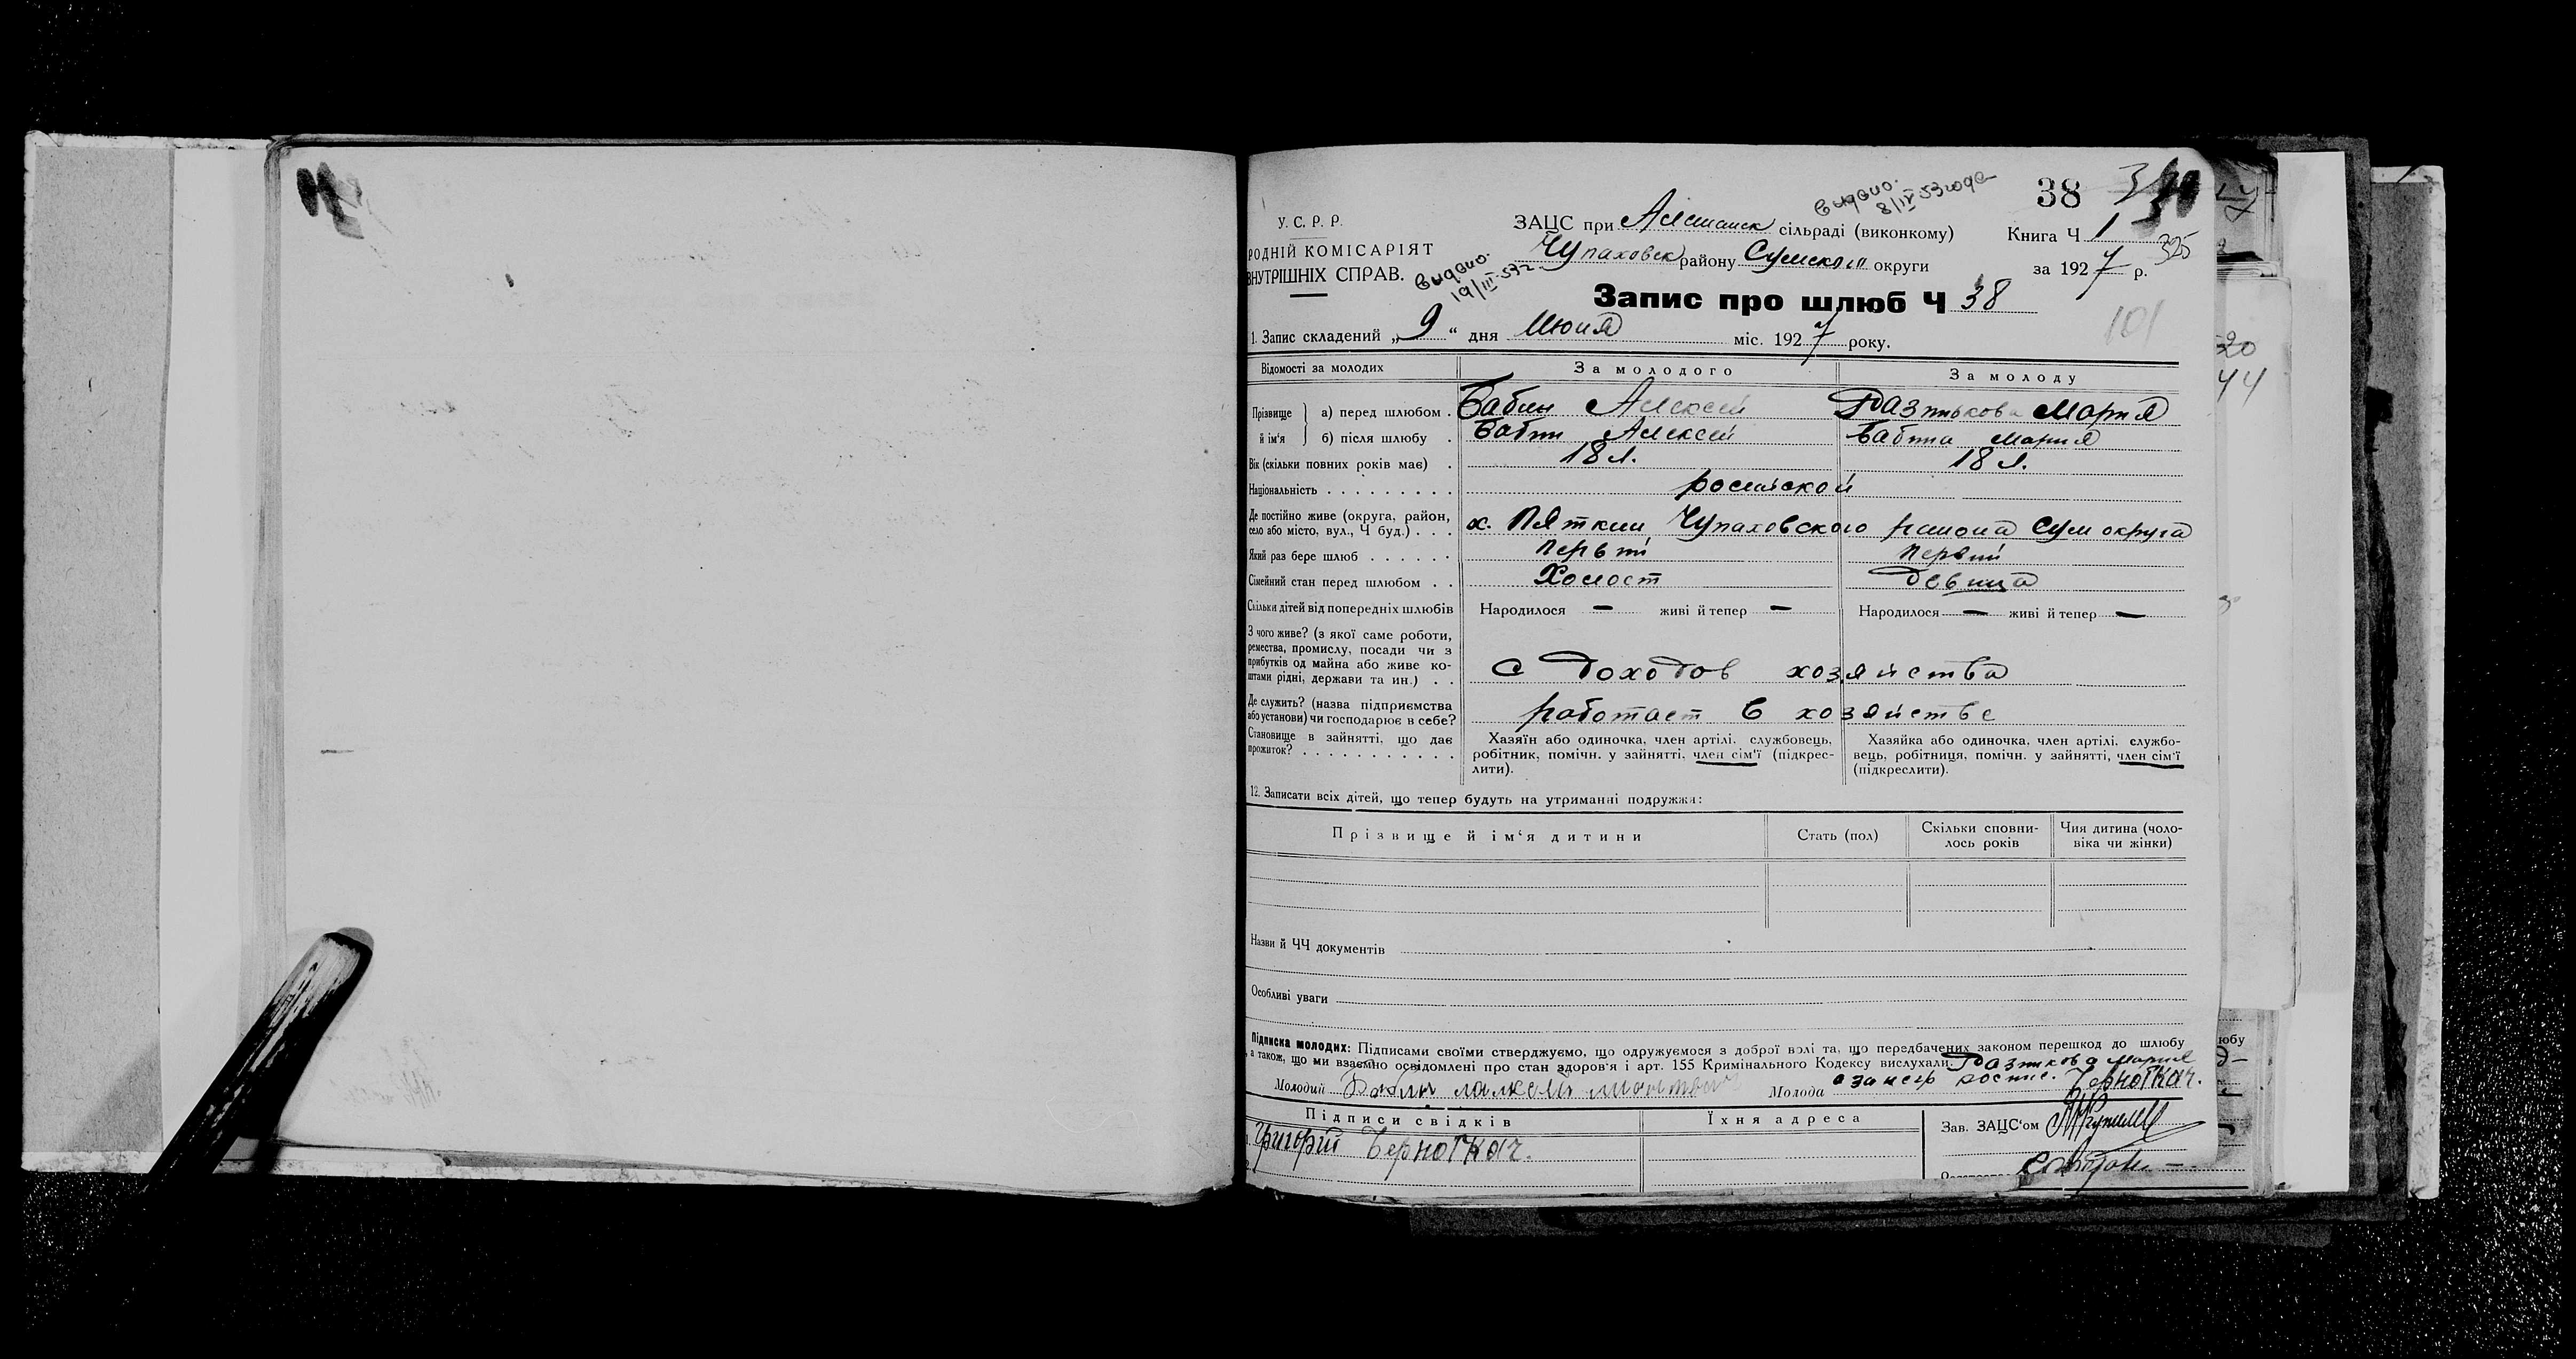 38
Видано.
8/IV 53 года
У. С. Р. Р.
ЗАЦС при Алешанск сільраді (виконкому)
Книга Ч 1
325
РОДНІЙ КОМІСАРІЯТ
Чупаховск району Сумского округи
за 1927 р.
ВНУТРІШНІХ СПРАВ.
Видано.
19/III-57 г.
Запис про шлюб Ч 38
101
1. Запис складений „9“ дня Июня міс. 1927 року.
Відомості за молодих
За молодого
За молоду
Прізвище й ім'я
а) перед шлюбом . Бабин Алексей Разинькова Мария
б) після шлюбу . Бабин Алексей Бабина Мария
Вік (скільки повних років має) . 18 л. 18 л.
Національність . . . . . . . . . российской
Де постійно живе (округа, район,
село або місто, вул., Ч буд.) . . . х. Пяткин Чупаховского района Сум округа
Який раз бере шлюб . . . . . . первый первый
Сімейний стан перед шлюбом . . Холост девица
Скільки дітей від попередніх шлюбів Народилося — живі й тепер — Народилося — живі й тепер —
З чого живе? (з якої саме роботи,
ремества, промислу, посади чи з
прибутків од майна або живе ко-
штами рідні, держави та ин.) . . с доходов хозяйства
Де служить? (назва підприємства
або установи) чи господарює в себе? работает в хозяйстве
Становище в зайнятті, що дає
прожиток? . . . . . . . . . . .
Хазяїн або одиночка, член артілі, службовець,
робітник, помічн. у зайнятті, член сім'ї (підкрес-
лити).
Хазяйка або одиночка, член артілі, службо-
вець, робітниця, помічн. у зайнятті, член сім'ї
(підкреслити).
12. Записати всіх дітей, що тепер будуть на утриманні подружжя:
Прізвище й ім'я дитини
Стать (пол)
Скільки сповни-
лось років
Чия дитина (чоло-
віка чи жінки)
Назви й ЧЧ документів
Особливі уваги
Підписка молодих: Підписами своїми стверджуємо, що одружуємося з доброї волі та, що передбачених законом перешкод до шлюбу
, а також, що ми взаємно освідомлені про стан здоров'я і арт. 155 Кримінального Кодексу вислухали. Разинкова Мария
Молодий Бабин
Молода Черноткач.
Підписи свідків
Їхня адреса
Зав. ЗАЦС'ом
Григорій Черноткач.
20
44
юбу